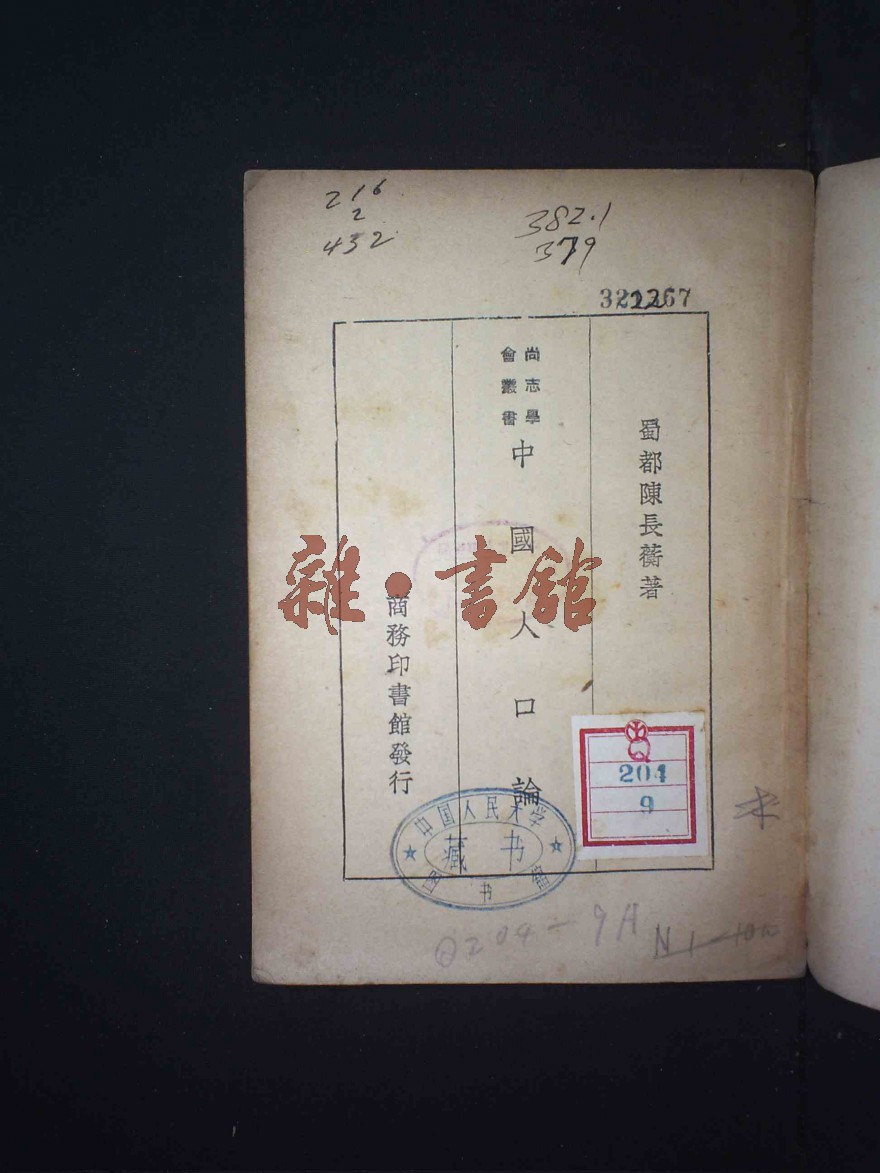 216
2
432
382.1
379
蜀都陳長蘅著
尚志學
會叢書
中國人口論
商務印書館發行
雜·書館
204
9
中国人民大学
藏书
图书馆
Q204-9A